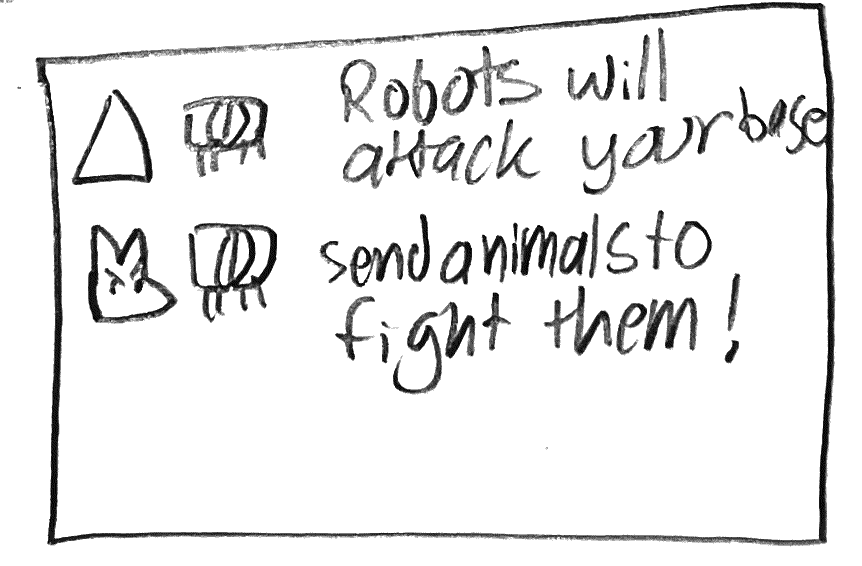 Robots will
attack your base
send animals to
fight them!